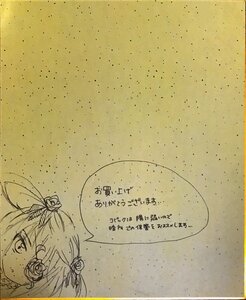 お買い上げ
ありがとうございます…
コピックは陽に弱いので
暗所での保管をおススメします…